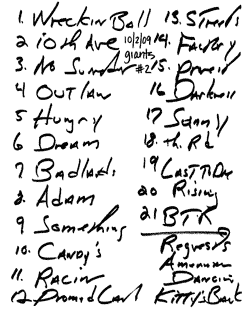 1. Wreckin Ball
2 10th Ave
3. No Surrender
4 OUTLAW
5 Hungry
6 Dream
7 Badlands
8. Adam
9 Something
10. Candy's
11. Racin
12. Promised Land
10/2/09
giants
#2
13. Streets
14. Factory
15. Proveit
16 Darkness
17 Sonny
18. th. Rd
19 LAST TO Die
20 Rising
21 BTR
Requests
American
Dancing
Kitty's Back